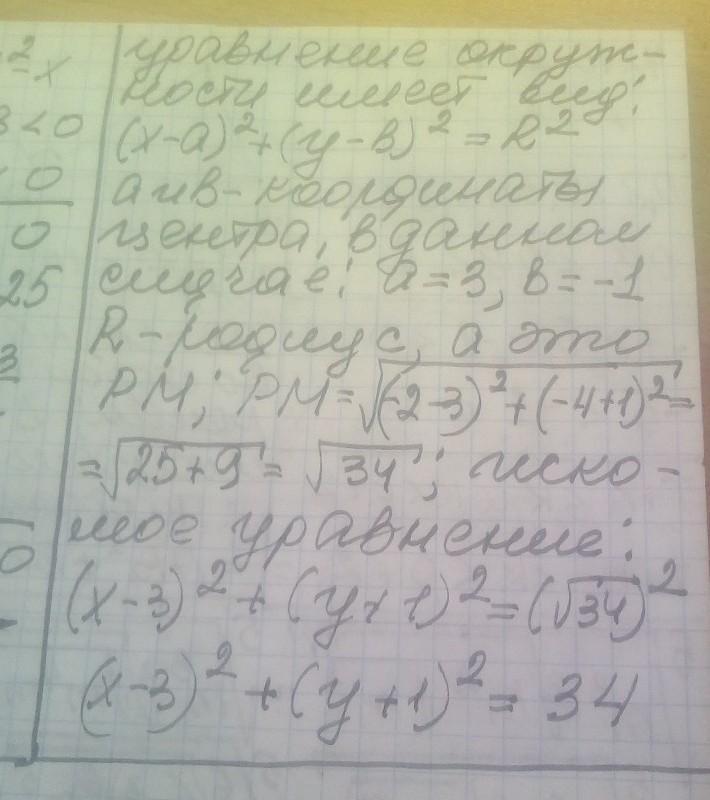 уравнение окруж-
ности имеет вид:
(x-a)²+(y-в)²=R²
a и в - координаты
центра, в данном
случае: a=3, в=-1
R-радиус, а это
PM; PM=√(-2-3)²+(-4+1)²=
=√25+9=√34; иско-
мое уравнение:
(x-3)²+(y+1)²=(√34)²
(x-3)²+(y+1)²=34
²x
3<0
0
0
25
3
0